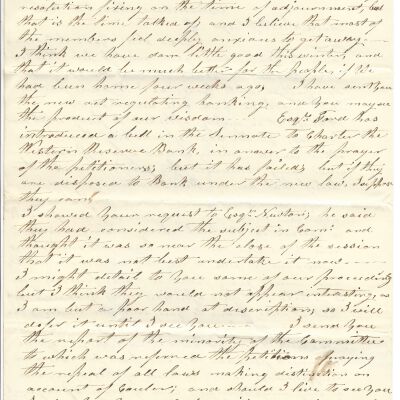 resolution fixing on the time of adjournment, but
that is the time talked of, and I believe that most of
the members feel deeply anxious to get away —
I think we have don little good this winter, and
that it would be much better for the people, if we
had been home four weeks ago, I have sent you
the new act regulating banking, and you may see
the product of our wisdom — Esqr. Ford has
introduced a bill in the Sennate to Charter the
Western Reserve Bank, in answer to the prayer
of the petitioners, but it has failed, but if they
are disposed to Bank under the new law, I suppose
they can
I showed your request to Esqr. Newton, he said
they had considered the subject in Com. and
thought it was so near the close of the session
that it was not best undertake it now —
I might detail to you some of our proceedings
but I think they would not appear interesting, as
I am but a poor hand at description, so I will
defer it until I see you — I send you
the report of the minority of the Committee
to which was referred the petitions praying
the repeal of all laws making distinction on
account of Couler, and should I live to see you